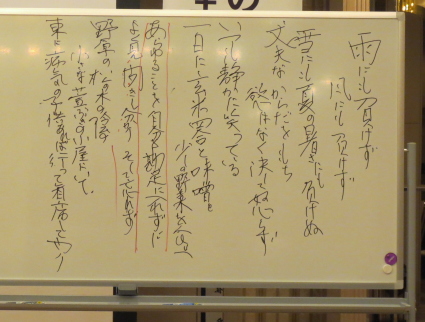 の
雨にも負けず
風にも負けず
雪にも夏の暑さにも負けぬ
丈夫なからだをもち
欲はなく決して怒らず
いつも静かに笑っている
一日に玄米四合と味噌と
少しの野菜を食べ
あらゆることを自分を勘定に入れずに
よく見聞きし分り そして忘れず
野原の松の林の陰の
小さな萱ぶきの小屋にいて
東に病気の子供あれば行って看病してやり